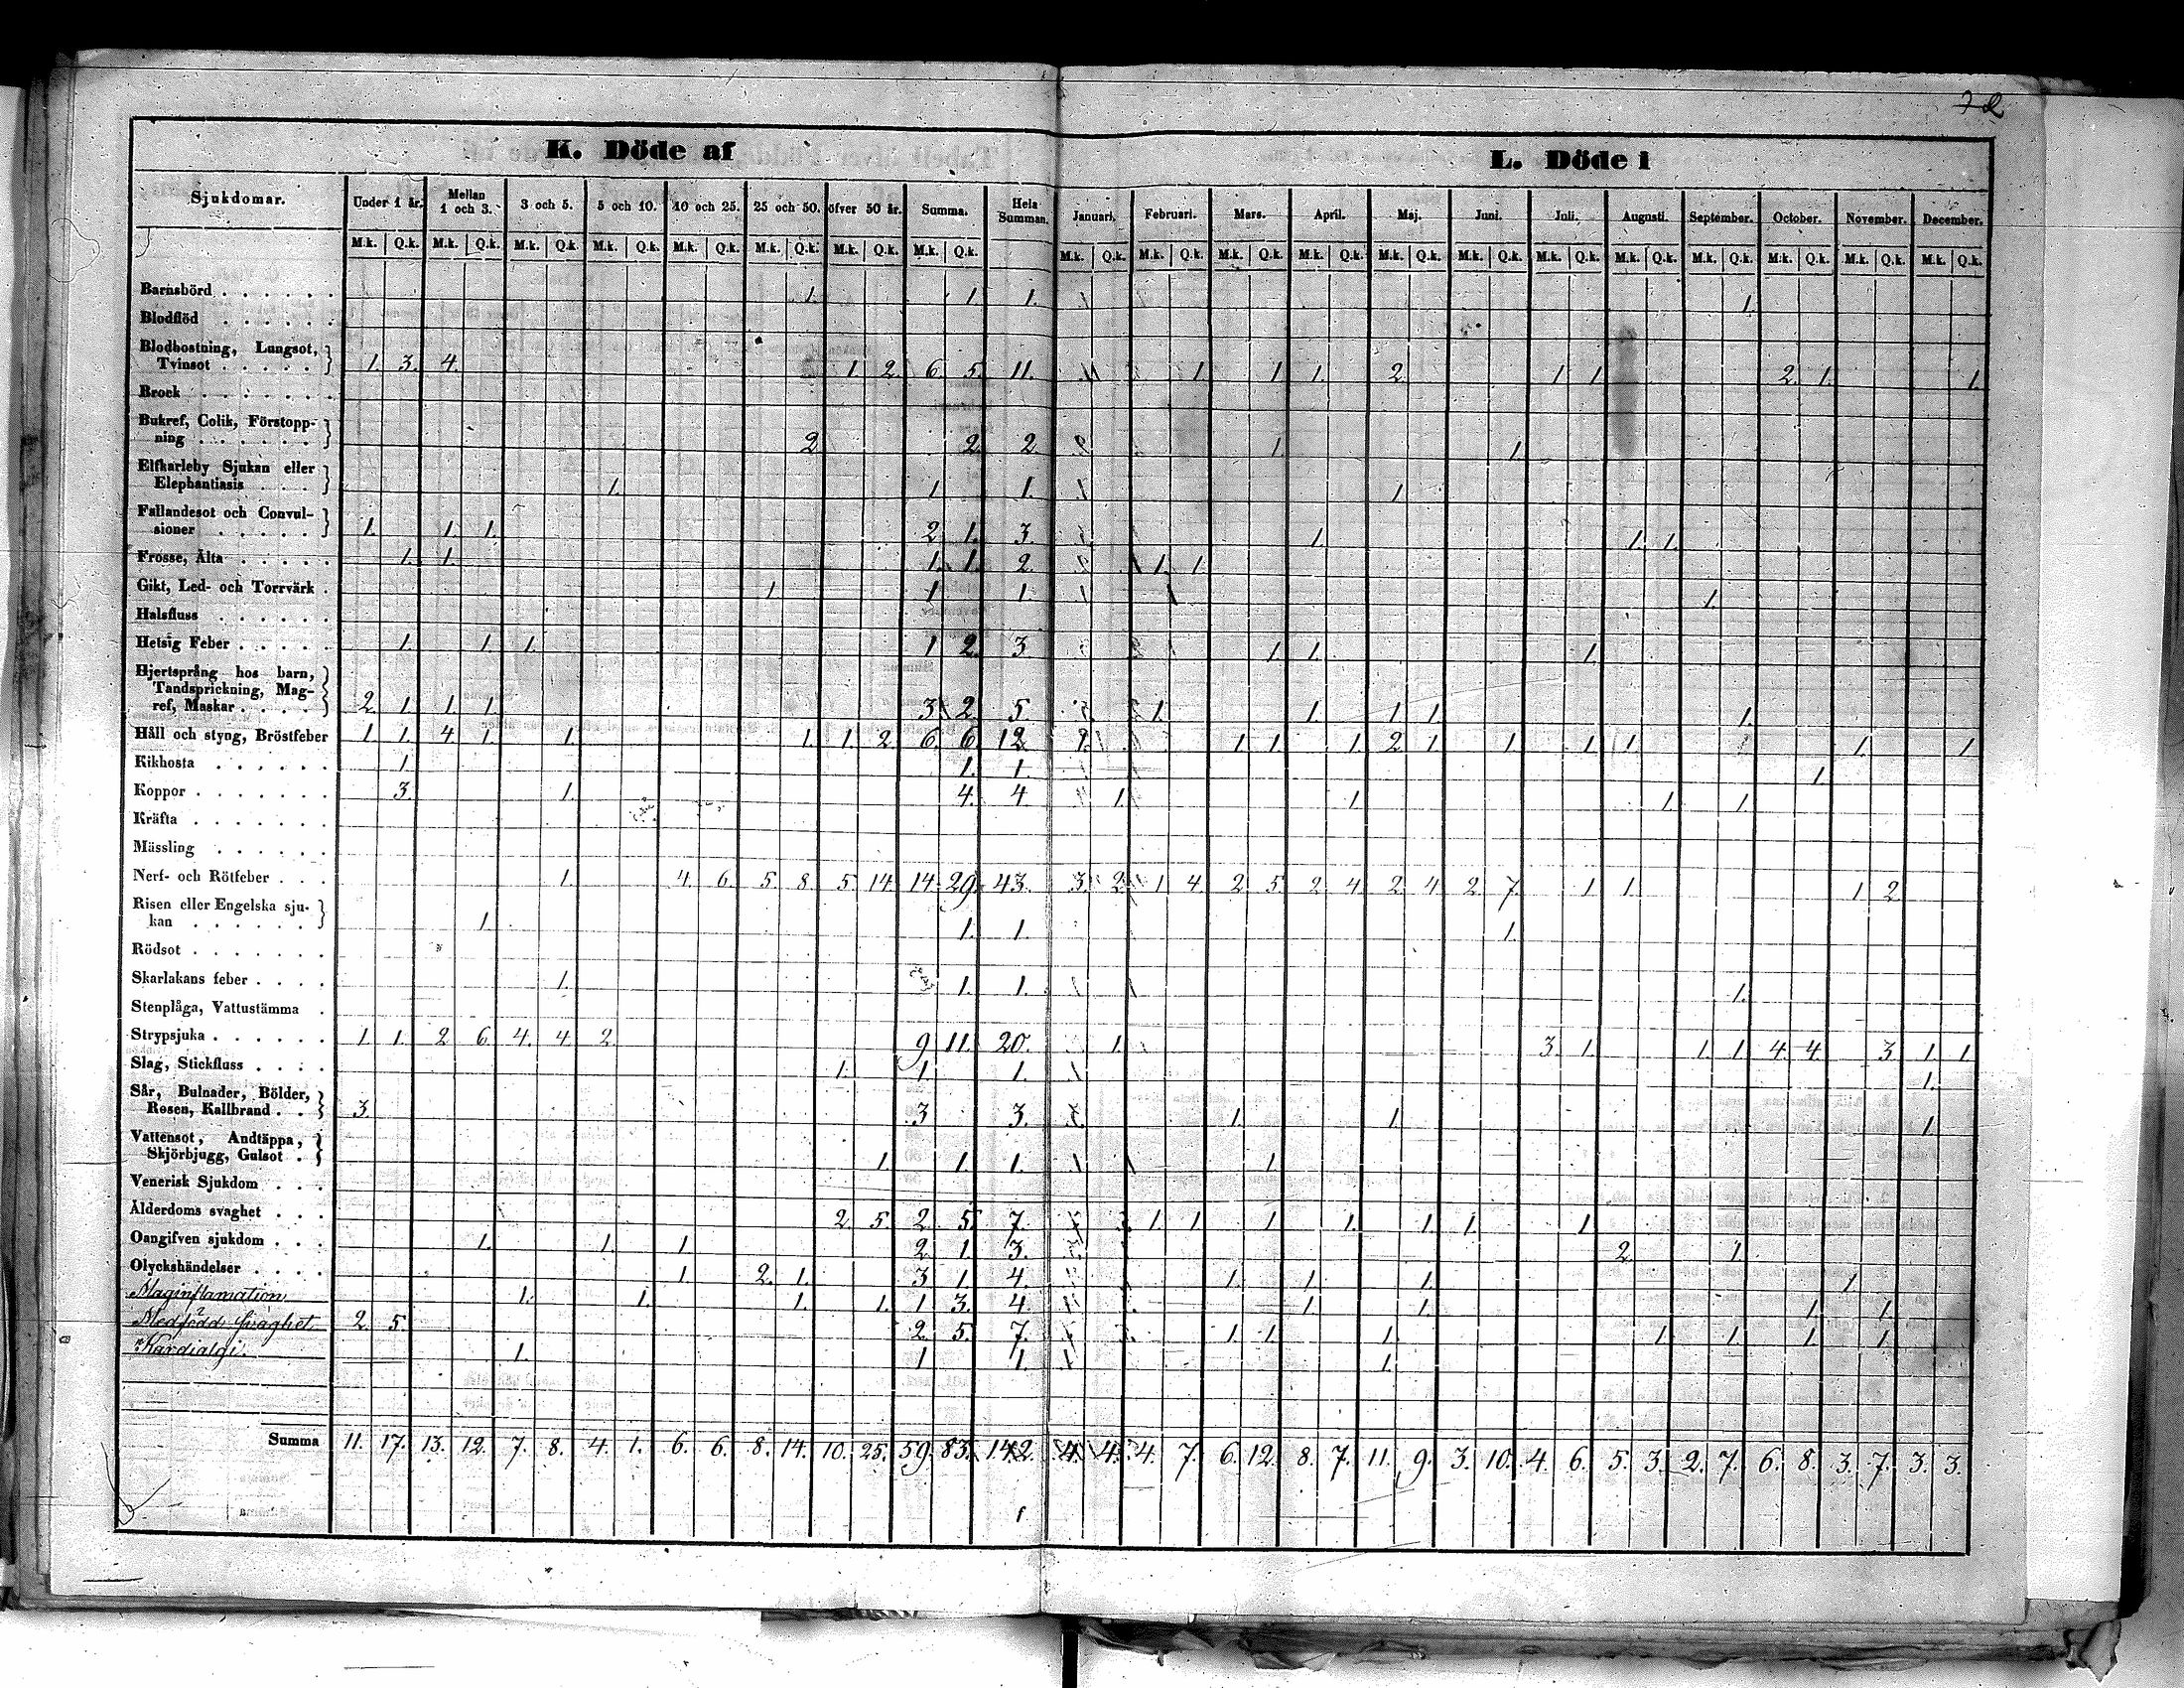 72
K. Döde af
L. Döde i
Sjukdomar. Under 1 år. Mellan 1 och 3. 3 och 5. 5 och 10. 10 och 25. 25 och 50. öfver 50 år. Summa. Hela Summan. Januari. Februari. Mars. April. Maj. Juni. Juli. Augusti. September. October. November. December.
M.k. Q.k. M.k. Q.k. M.k. Q.k. M.k. Q.k. M.k. Q.k. M.k. Q.k. M.k. Q.k. M.k. Q.k. M.k. Q.k. M.k. Q.k. M.k. Q.k. M.k. Q.k. M.k. Q.k. M.k. Q.k. M.k. Q.k. M.k. Q.k. M.k. Q.k. M.k. Q.k. M.k. Q.k. M.k. Q.k.
Barnsbörd . . . . . . 1. 1 1. 1.
Blodflöd . . . . . .
Blodhostning, Lungsot,
Tvinsot . . . . . 1. 3. 4. 1. 2. 6. 5. 11. 1 1 1. 2. 1 1 2. 1. 1.
Brock . . . . . . .
Bukref, Colik, Förstopp-
ning . . . . . . 2. 2. 2. 1. 1.
Elfkarleby Sjukan eller
Elephantiasis . . . 1. 1 1. 1
Fallandesot och Convul-
sioner . . . . . 1. 1. 1. 2. 1. 3. 1. 1. 1.
Frosse, Älta . . . . . 1. 1. 1. 1. 2. 1. 1
Gikt, Led- och Torrvärk . 1 1 1. 1.
Halsfluss . . . . . .
Hetsig Feber . . . . . 1. 1 1. 1 2. 3 1 1. 1.
Hjertsprång hos barn,
Tandsprickning, Mag-
ref, Maskar . . . . 2. 1 1 1 3 2. 5. 1. 1. 1 1 1.
Håll och styng, Bröstfeber 1. 1. 4. 1. 1. 1. 1. 2. 6. 6. 12. 1 1 1. 2 1 1 1 1 1. 1
Kikhosta . . . . . . 1 1. 1. 1.
Koppor . . . . . . . 3. 1. 4. 4. 1. 1 1. 1
Kräfta . . . . . . .
Mässling . . . . . .
Nerf- och Rötfeber . . . 1. 4. 6. 5. 8. 5. 14. 14. 29. 43. 3. 2. 1 4. 2 5. 2. 4. 2 4. 2. 7. 1 1. 1 2.
Risen eller Engelska sju-
kan . . . . . . 1. 1. 1. 1.
Rödsot . . . . . . .
Skarlakans feber . . . . 1. 1. 1. 1.
Stenplåga, Vattustämma .
Strypsjuka . . . . . . 1. 1. 2. 6. 4. 4. 2. 9. 11. 20. 1. 3. 1. 1. 1 4. 4. 3 1. 1
Slag, Stickfluss . . . . 1. 1. 1. 1.
Sår, Bulnader, Bölder,
Rosen, Kallbrand . . 3. 3. 3. 1. 1 1.
Vattensot, Andtäppa,
Skjörbjugg, Gulsot . 1 1 1. 1
Venerisk Sjukdom . . .
Ålderdoms svaghet . . . 2. 5. 2. 5. 7. 1 1 1 1. 1 1. 1
Oangifven sjukdom . . . 1. 1. 1 2. 1. 3. 2. 1
Olyckshändelser . . . . 1. 2. 1. 3 1. 4. 1 1 1. 1.
Maginflamation 1. 1. 1. 1. 1 3. 4. 1 1 1 1.
Medfödd svaghet 2. 5. 2. 5. 7. 1 1 1 1 1 1 1
Kardialgi. 1. 1 1. 1.
Summa 11. 17. 13. 12. 7. 8. 4. 1. 6. 6. 8. 14. 10. 25. 59. 83. 142. 4. 4. 4. 7. 6. 12. 8. 7. 11. 9. 3. 10. 4. 6. 5. 3. 2. 7. 6. 8. 3. 7. 3. 3.